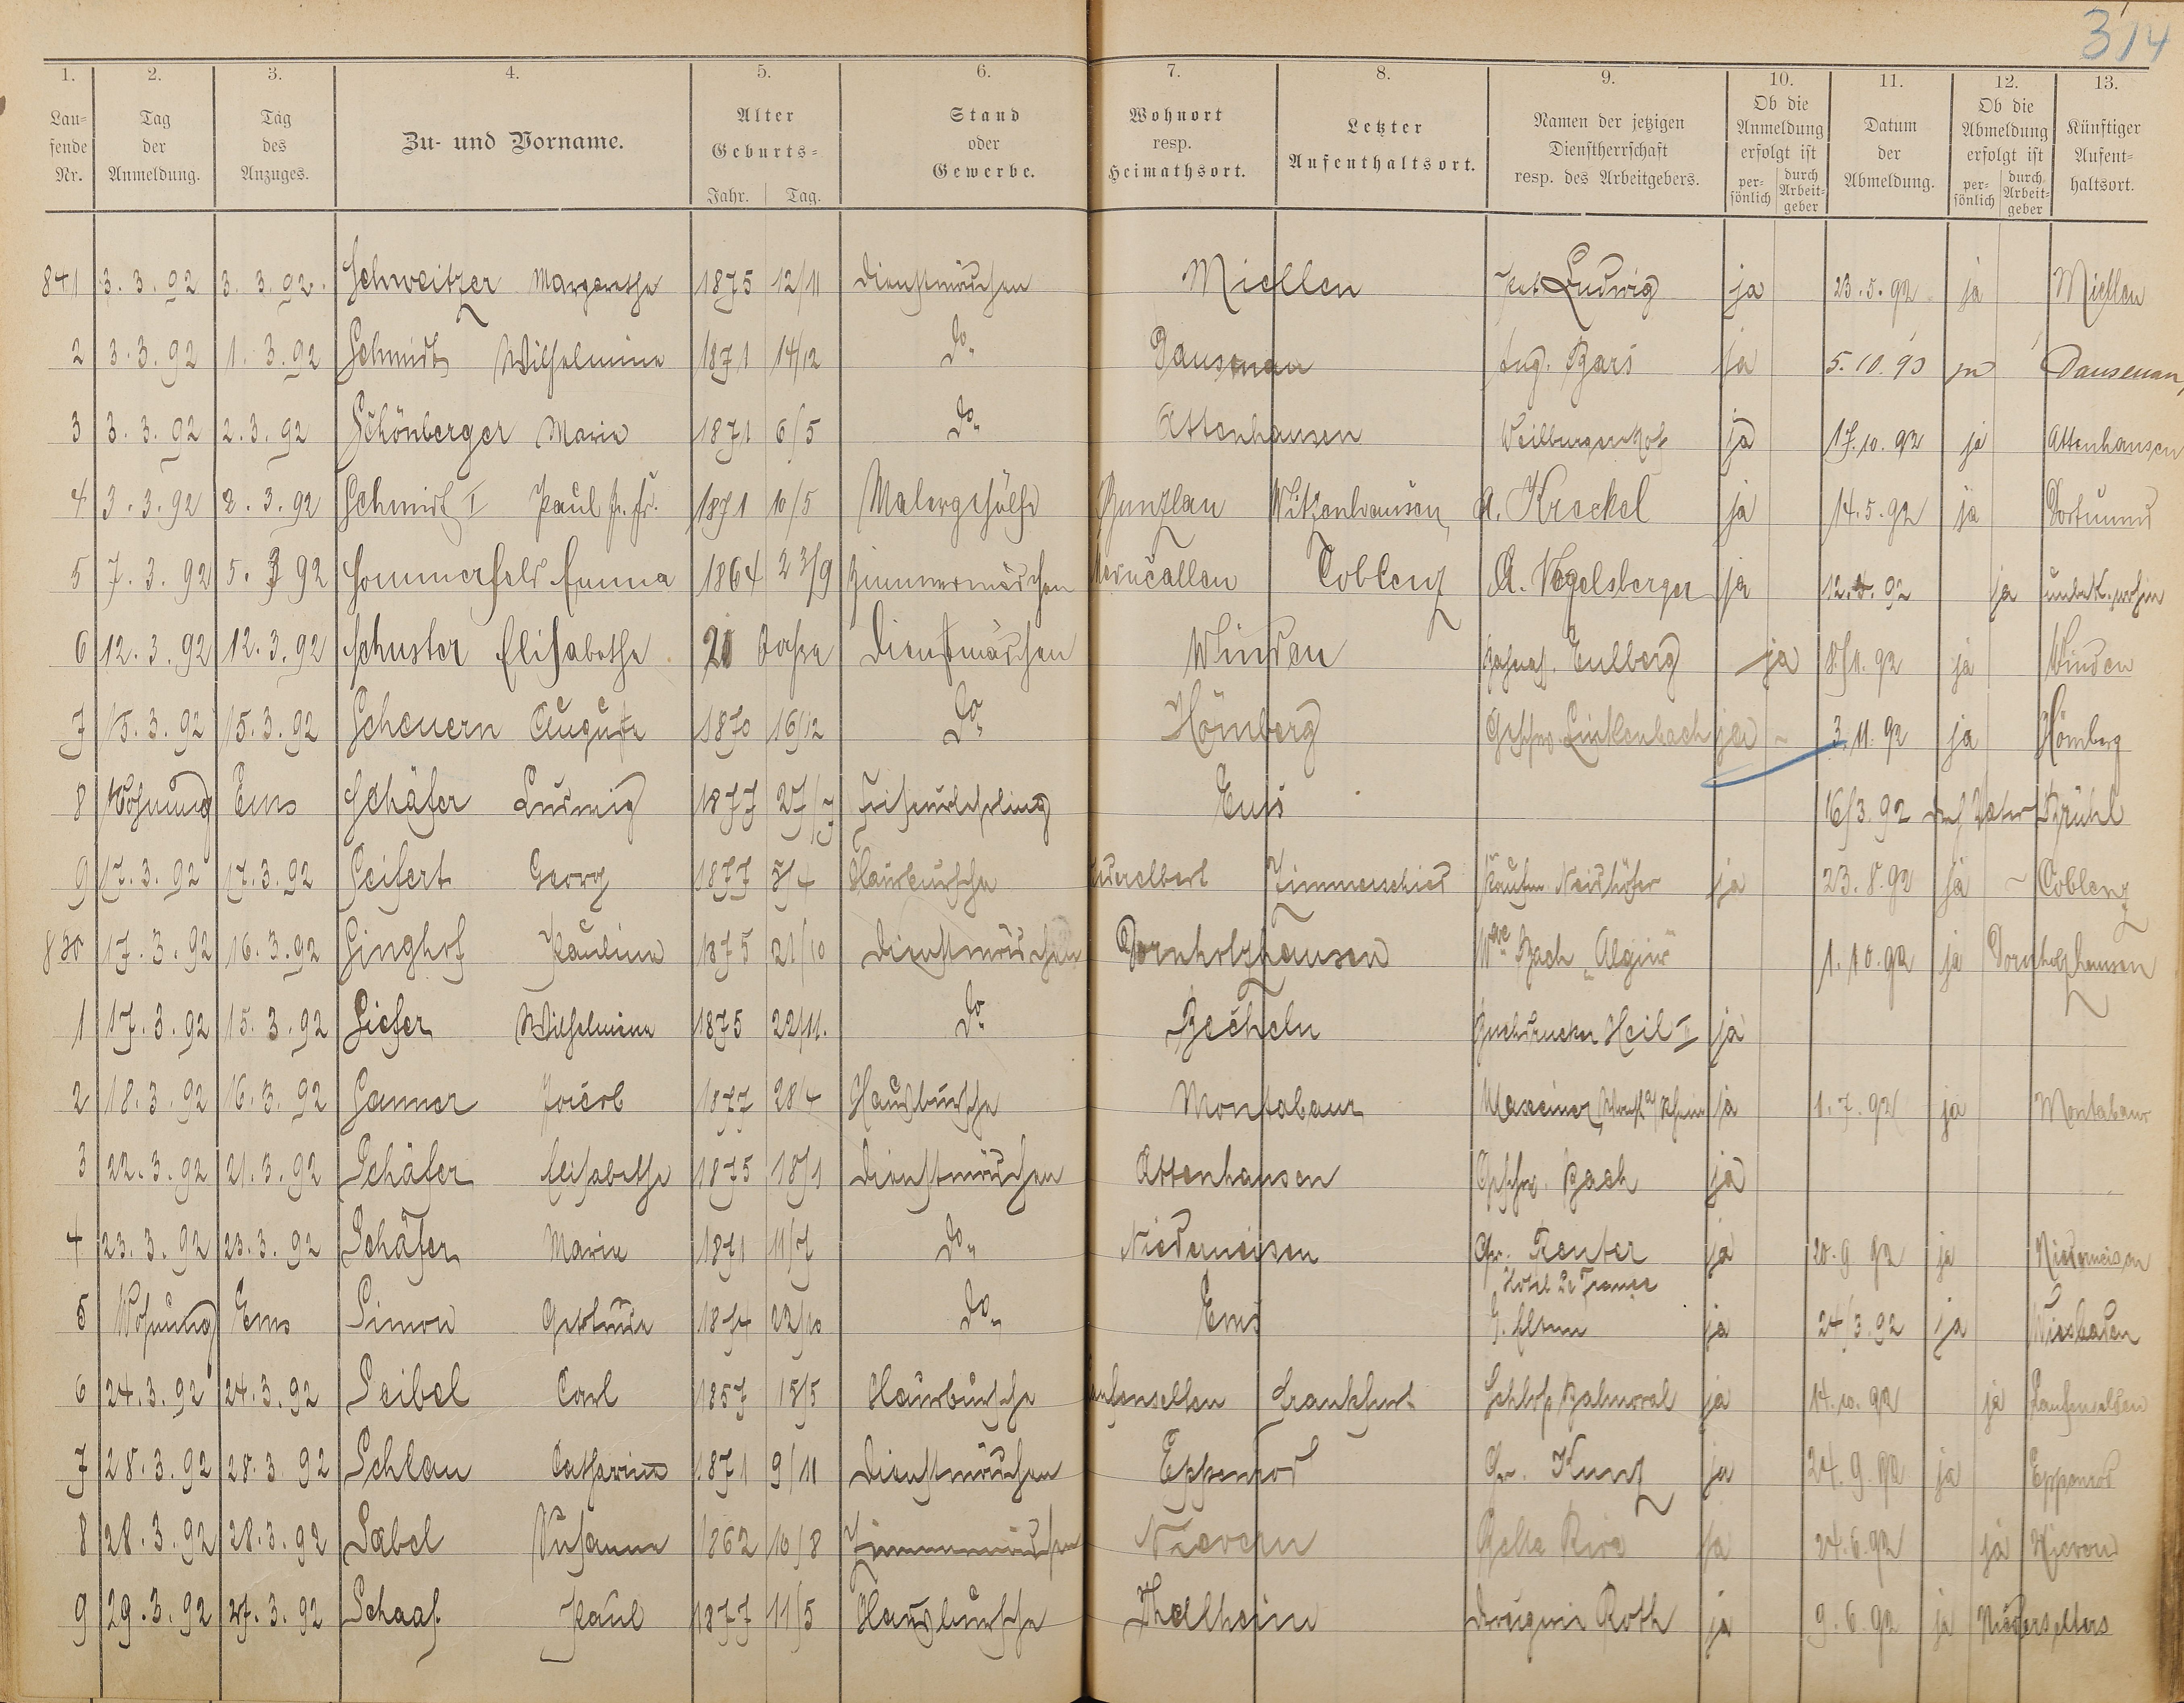 314
1. 2. 3. 4. 5. 6. 7. 8. 9. 10. 11. 12. 13.
Laufende Nr. Tag der Anmeldung. Tag des Anzuges. Zu- und Vorname. Alter Geburts- Jahr. Tag. Stand oder Gewerbe. Wohnort resp. Heimathsort. Letzter Aufenthaltsort. Namen der jetzigen Dienstherrschaft resp. des Arbeitgebers. Ob die Anmeldung erfolgt ist persönlich durch Arbeitgeber Datum der Abmeldung. Ob die Abmeldung erfolgt ist persönlich durch Arbeitgeber Künftiger Aufenthaltsort.
841 3.3.92 3.3.92. Schweitzer Margarethe 1875 12/11 Dienstmädchen Miellen Ludwig ja 23.5.92 ja Miellen
2 3.3.92 1.3.92 Schmidt Wilhelmine 1871 14/12 do. Dausenau Aug. ja 5.10.93 ja Dausenau
3 3.3.92 2.3.92 Schönberger Marie 1871 6/5 do. Attenhausen ja 17.10.92 ja Attenhausen
4 3.3.92 2.3.92 Schmidt I Paul 1871 10/5 Malergehülfe Bunzlau Witzenhausen A. Kreckel ja 14.5.92 ja Dortmund
5 7.3.92 5.3 92 Sommerfeld Emma 1864 23/9 Zimmermädchen Coblenz A. Vogelsberger ja 12.4.92 ja unbek. wohin
6 12.3.92 12.3.92 Schuster Elisabethe 21 Jahre Dienstmädchen Winden Eulberg ja 8/11.92 ja Winden
7 15.3.92 15.3.92 Scheuern Auguste 1870 16/12 do. Hömberg Geschw. Linkenbach ja - 3.11.92 ja Hömberg
8 Wohnung Ems Schäfer Ludwig 1877 27/7 Friseurlehrling Ems 16/3.92 Vater Brühl
9 17.3.92 17.3.92 Seifert Georg 1877 8/4 Hausbursche Zimmerschied Kaufm. Neidhöfer ja 23.8.92 ja - Coblenz
850 17.3.92 16.3.92 Singhof Pauline 1875 21/10 Dienstmädchen Dornholzhausen Wwe Bach 1.10.92 ja Dornholzhausen
1 17.3.92 15.3.92 Siefer Wilhelmine 1875 22/11. do. Becheln Buchdrucker Heil I ja
2 18.3.92 16.3.92 Sanner Jacob 1877 28/4 Hausbursche Montabaur ja 1.7.92 ja Montabaur
3 22.3.92 21.3.92 Schäfer Elisabethe 1875 18/1 Dienstmädchen Attenhausen Geschw. Bach ja
4 23.3.92 23.3.92 Schäfer Marie 1871 11/7 do. Niederneisen Chr. Reuter ja 20.9 92 ja Niederneisen
5 Wohnung Ems Simon Gertrude 1874 22/10 do. Ems Hotel de France ja 24/3.92 ja Wiesbaden
6 24.3.92 24.3.92 Seibel Carl 1857 15/5 Hausbursche Laufenselten Frankfurt Schloß Balmoral ja 14.10.92 ja Laufenselten
7 28.3.92 28.3.92 Schlau Catharine 1871 9/11 Dienstmädchen Eppenrod Chr. Kunz ja 24.9.92 ja Eppenrod
8 28.3.92 28.3.92 Sabel Susanne 1862 10/8 Zimmermädchen Nievern Bella Riva ja 24.6.92 ja Nievern
9 29.3.92 27.3.92 Schaaf Paul 1877 11/5 Hausbursche Thalheim Droguerie Roth ja 9.6.92 ja Niederselters